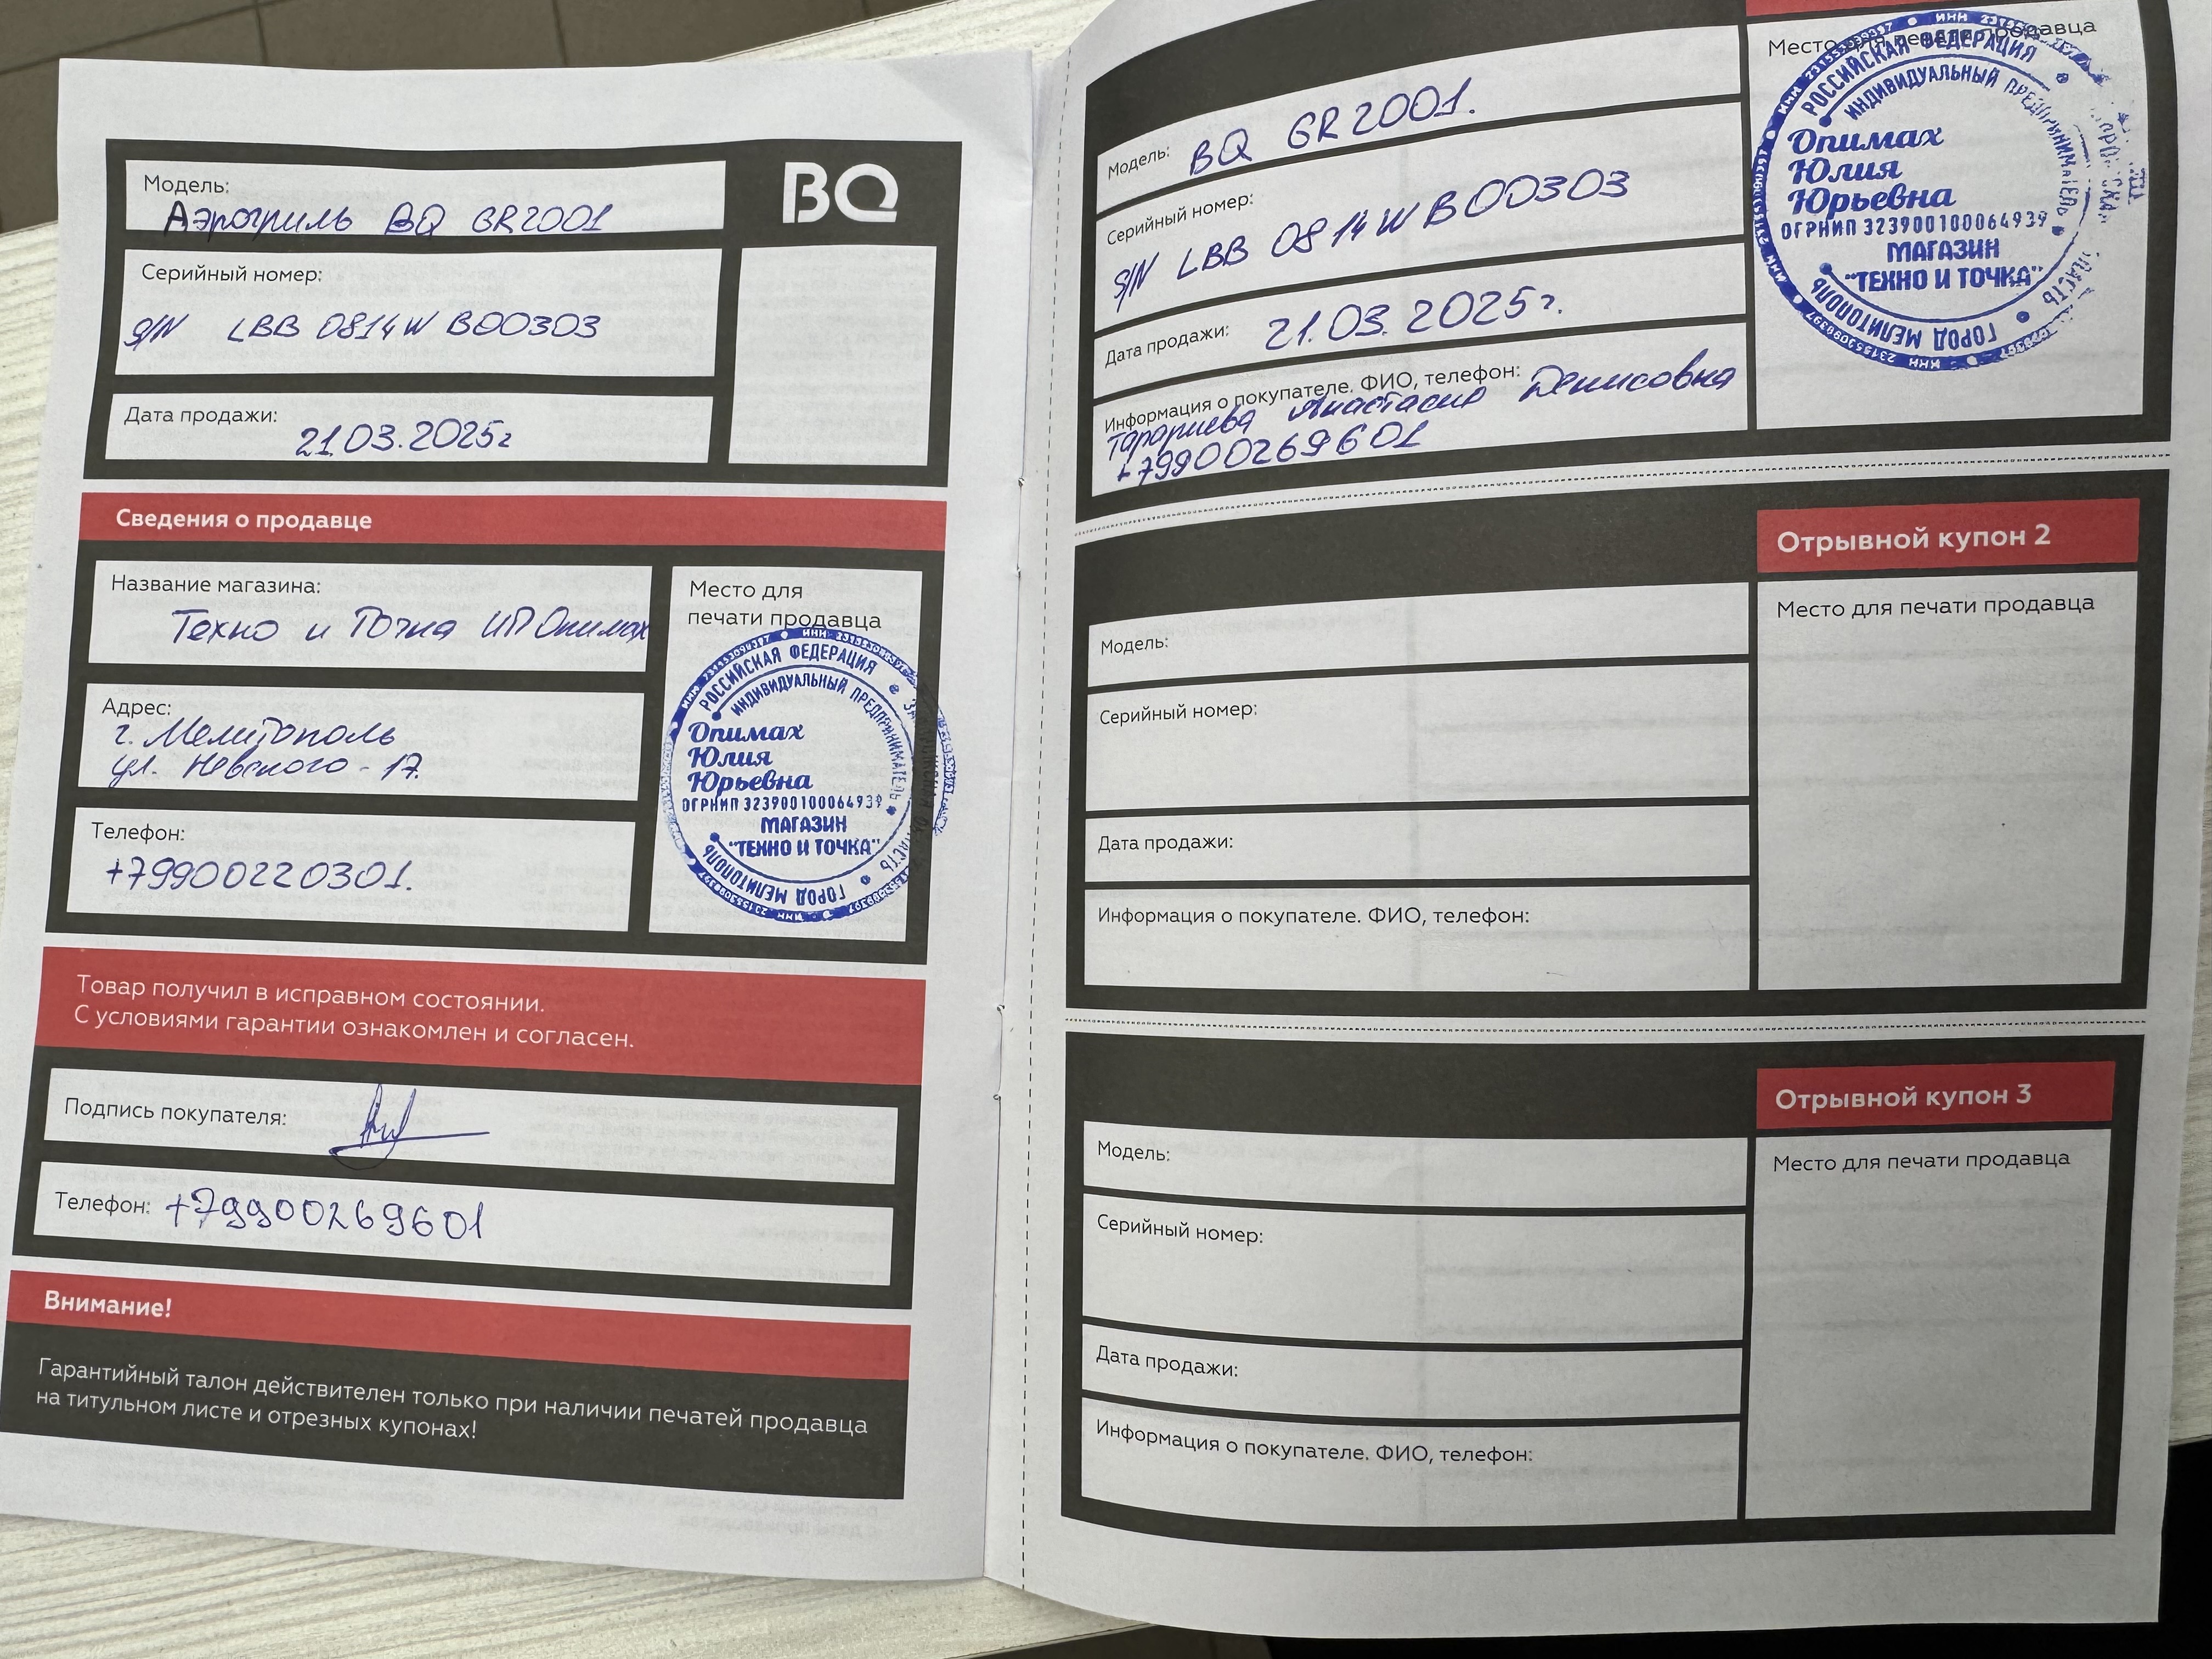 BQ
Модель:
Аэрогриль BQ GR2001
Серийный номер:
S/N LBB 0814W B00303
Дата продажи:
21.03.2025г
Сведения о продавце
Название магазина:
Техно и Точка ИП Опимах
Адрес:
г. Мелитополь
ул. Невского - 17.
Телефон:
+79900220301.
Место для
печати продавца
РОССИЙСКАЯ ФЕДЕРАЦИЯ
ИНДИВИДУАЛЬНЫЙ ПРЕДПРИНИМАТЕЛЬ
Опимах
Юлия
Юрьевна
ОГРНИП 323900100064939
МАГАЗИН
"ТЕХНО И ТОЧКА"
ГОРОД МЕЛИТОПОЛЬ
Товар получил в исправном состоянии.
С условиями гарантии ознакомлен и согласен.
Подпись покупателя:
Телефон: +79900269601
Внимание!
Гарантийный талон действителен только при наличии печатей продавца
на титульном листе и отрезных купонах!
Модель: BQ GR2001.
Серийный номер:
S/N LBB 0814W B00303
Дата продажи: 21.03.2025г.
Информация о покупателе. ФИО, телефон:
Анастасия Денисовна
+79900269601
Место для печати продавца
РОССИЙСКАЯ ФЕДЕРАЦИЯ
ИНДИВИДУАЛЬНЫЙ ПРЕДПРИНИМАТЕЛЬ
Опимах
Юлия
Юрьевна
ОГРНИП 323900100064939
МАГАЗИН
"ТЕХНО И ТОЧКА"
ГОРОД МЕЛИТОПОЛЬ
Отрывной купон 2
Место для печати продавца
Модель:
Серийный номер:
Дата продажи:
Информация о покупателе. ФИО, телефон:
Отрывной купон 3
Место для печати продавца
Модель:
Серийный номер:
Дата продажи:
Информация о покупателе. ФИО, телефон: